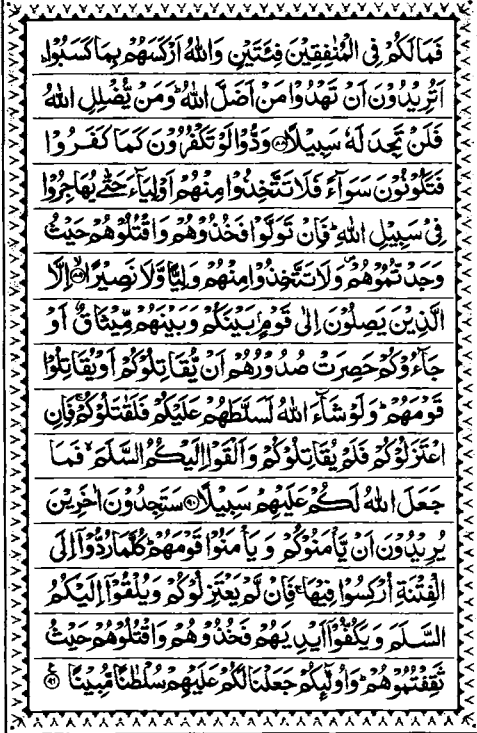 فَمَا لَكُمْ فِى الْمُنٰفِقِيْنَ فِئَتَيْنِ وَاللّٰهُ اَرْكَسَهُمْ بِمَا كَسَبُوْا
اَتُرِيْدُوْنَ اَنْ تَهْدُوْا مَنْ اَضَلَّ اللّٰهُ ؕ وَمَنْ يُّضْلِلِ اللّٰهُ
فَلَنْ تَجِدَ لَهٗ سَبِيْلًا ﴿۸۸﴾ وَدُّوْا لَوْ تَكْفُرُوْنَ كَمَا كَفَرُوْا
فَتَكُوْنُوْنَ سَوَآءً فَلَا تَتَّخِذُوْا مِنْهُمْ اَوْلِيَآءَ حَتّٰى يُهَاجِرُوْا
فِىْ سَبِيْلِ اللّٰهِ ؕ فَاِنْ تَوَلَّوْا فَخُذُوْهُمْ وَاقْتُلُوْهُمْ حَيْثُ
وَجَدْتُّمُوْهُمْ ۪ وَلَا تَتَّخِذُوْا مِنْهُمْ وَلِيًّا وَّلَا نَصِيْرًا ﴿۸۹﴾ اِلَّا
الَّذِيْنَ يَصِلُوْنَ اِلٰى قَوْمٍۭ بَيْنَكُمْ وَبَيْنَهُمْ مِّيْثَاقٌ اَوْ
جَآءُوْكُمْ حَصِرَتْ صُدُوْرُهُمْ اَنْ يُّقَاتِلُوْكُمْ اَوْ يُقَاتِلُوْا
قَوْمَهُمْ ؕ وَلَوْ شَآءَ اللّٰهُ لَسَلَّطَهُمْ عَلَيْكُمْ فَلَقٰتَلُوْكُمْ ۚ فَاِنِ
اعْتَزَلُوْكُمْ فَلَمْ يُقَاتِلُوْكُمْ وَاَلْقَوْا اِلَيْكُمُ السَّلَمَ ۙ فَمَا
جَعَلَ اللّٰهُ لَكُمْ عَلَيْهِمْ سَبِيْلًا ﴿۹۰﴾ سَتَجِدُوْنَ اٰخَرِيْنَ
يُرِيْدُوْنَ اَنْ يَّاْمَنُوْكُمْ وَ يَاْمَنُوْا قَوْمَهُمْ ؕ كُلَّمَا رُدُّوْۤا اِلَى
الْفِتْنَةِ اُرْكِسُوْا فِيْهَا ۚ فَاِنْ لَّمْ يَعْتَزِلُوْكُمْ وَيُلْقُوْۤا اِلَيْكُمُ
السَّلَمَ وَيَكُفُّوْۤا اَيْدِيَهُمْ فَخُذُوْهُمْ وَاقْتُلُوْهُمْ حَيْثُ
ثَقِفْتُمُوْهُمْ ؕ وَاُولٰٓئِكُمْ جَعَلْنَا لَكُمْ عَلَيْهِمْ سُلْطٰنًا مُّبِيْنًا ﴿۹۱﴾